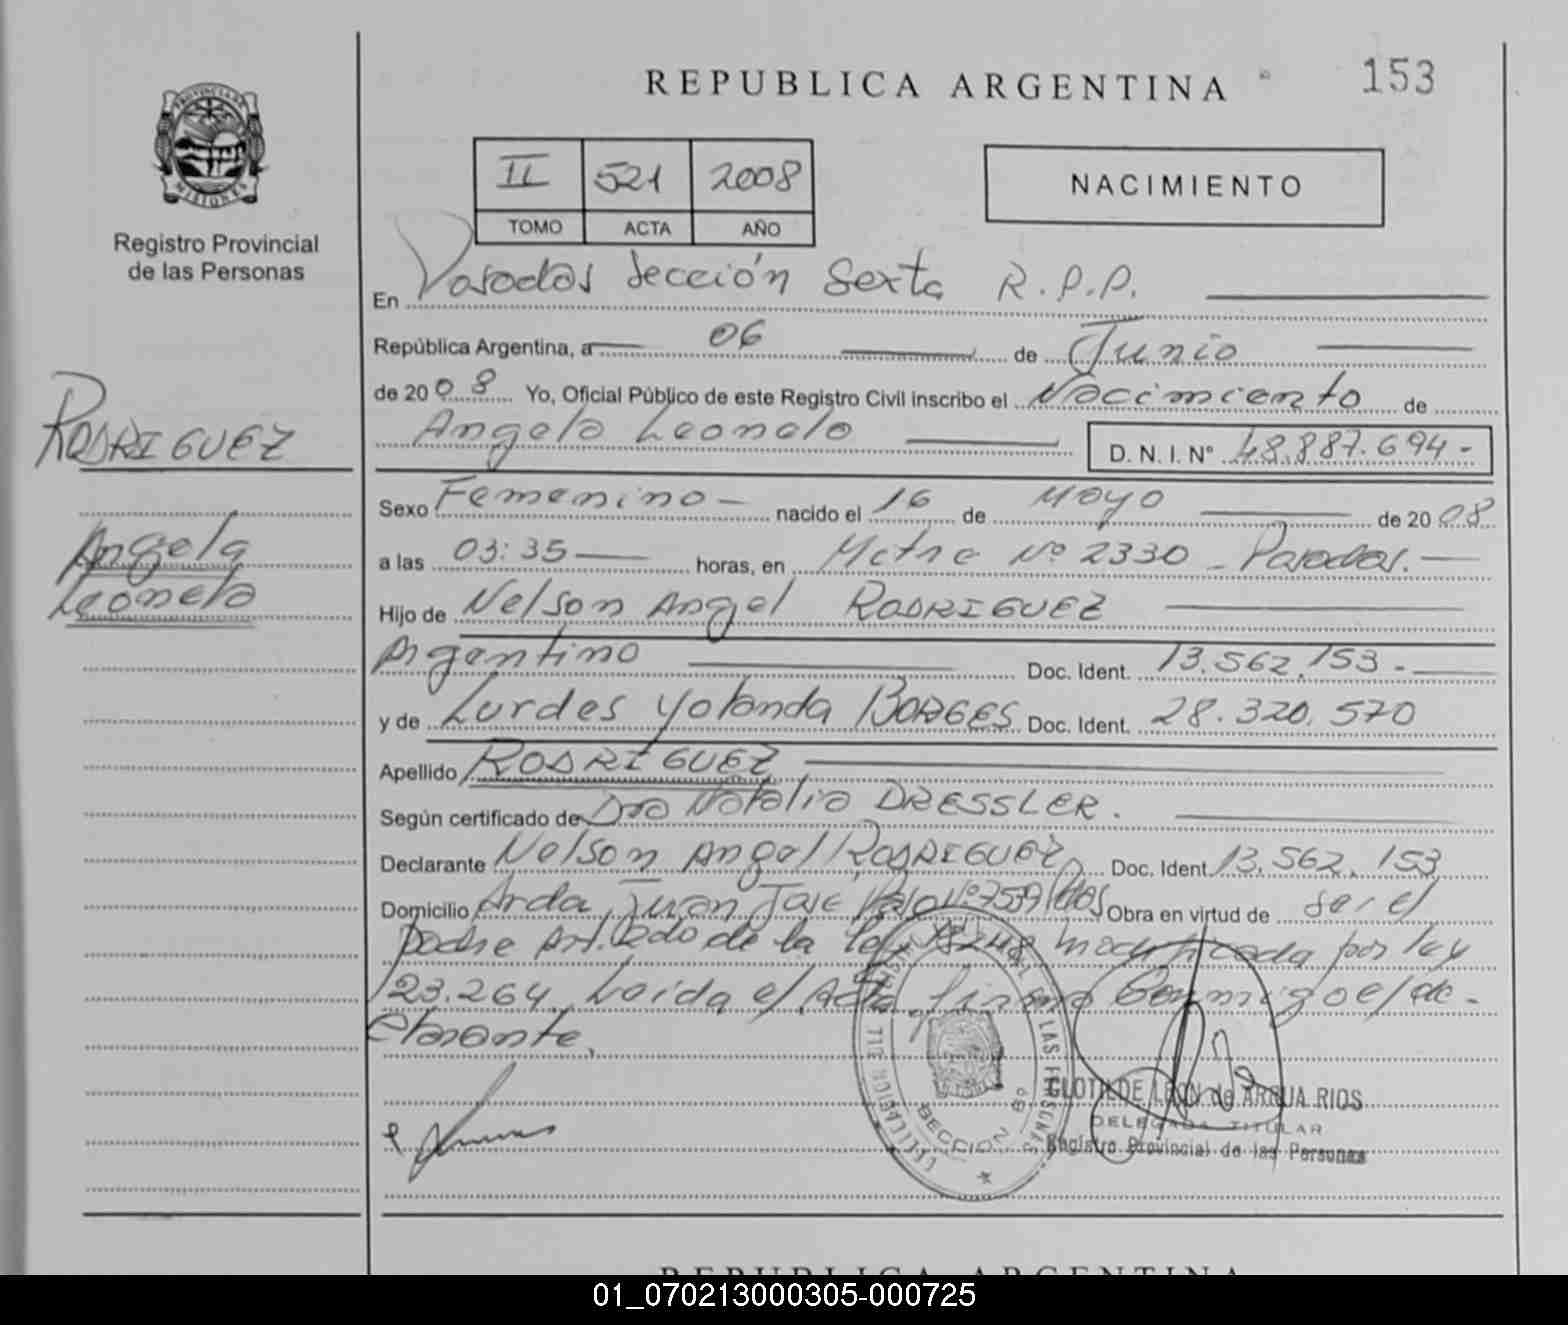 REPUBLICA ARGENTINA
153
PROVINCIA DE
MISIONES
Registro Provincial
de las Personas
II 521 2008
TOMO ACTA AÑO
NACIMIENTO
En Posadas Sección Sexta R.P.P.
República Argentina, a 06 de Junio
de 2008 Yo, Oficial Público de este Registro Civil inscribo el Nacimiento de
Angela Leonela
D. N. I. N° 48.887.694-
RODRIGUEZ
Angela
Leonela
Sexo Femenino - nacido el 16 de Mayo de 2008
a las 03:35 horas, en Mctne Nº 2330 - Posadas.
Hijo de Nelson Angel RODRIGUEZ
Argentino Doc. Ident. 13.562.153-
y de Lurdes Yolanda BORGES Doc. Ident. 28.320.570
Apellido RODRIGUEZ
Según certificado de Dra Natalia DRESSLER.
Declarante Nelson Angel RODRIGUEZ Doc. Ident 13.562.153
Domicilio Avda Juan José Nº 759 Pdas Obra en virtud de ser el
padre Art. 2do de la Ley 18248 modificada por ley
23.264. Leída el Acta, firma conmigo el de-
clarante.
SECCION 6º
CLOTILDE LEON de ARGUA RIOS
DELEGADA TITULAR
Registro Provincial de las Personas
REPUBLICA ARGENTINA
01_070213000305-000725